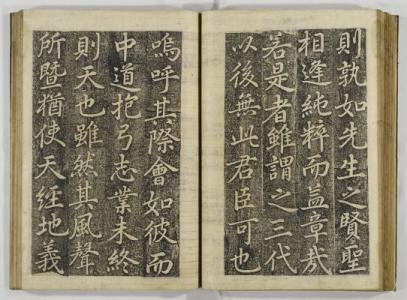 則孰如先生之賢聖
相逢純粹而益章哉
若是者雖謂之三代
以後無此君臣可也
嗚呼其際會如彼而
中道抱弓志業未終
則天也雖然其風聲
所曁猶使天經地義